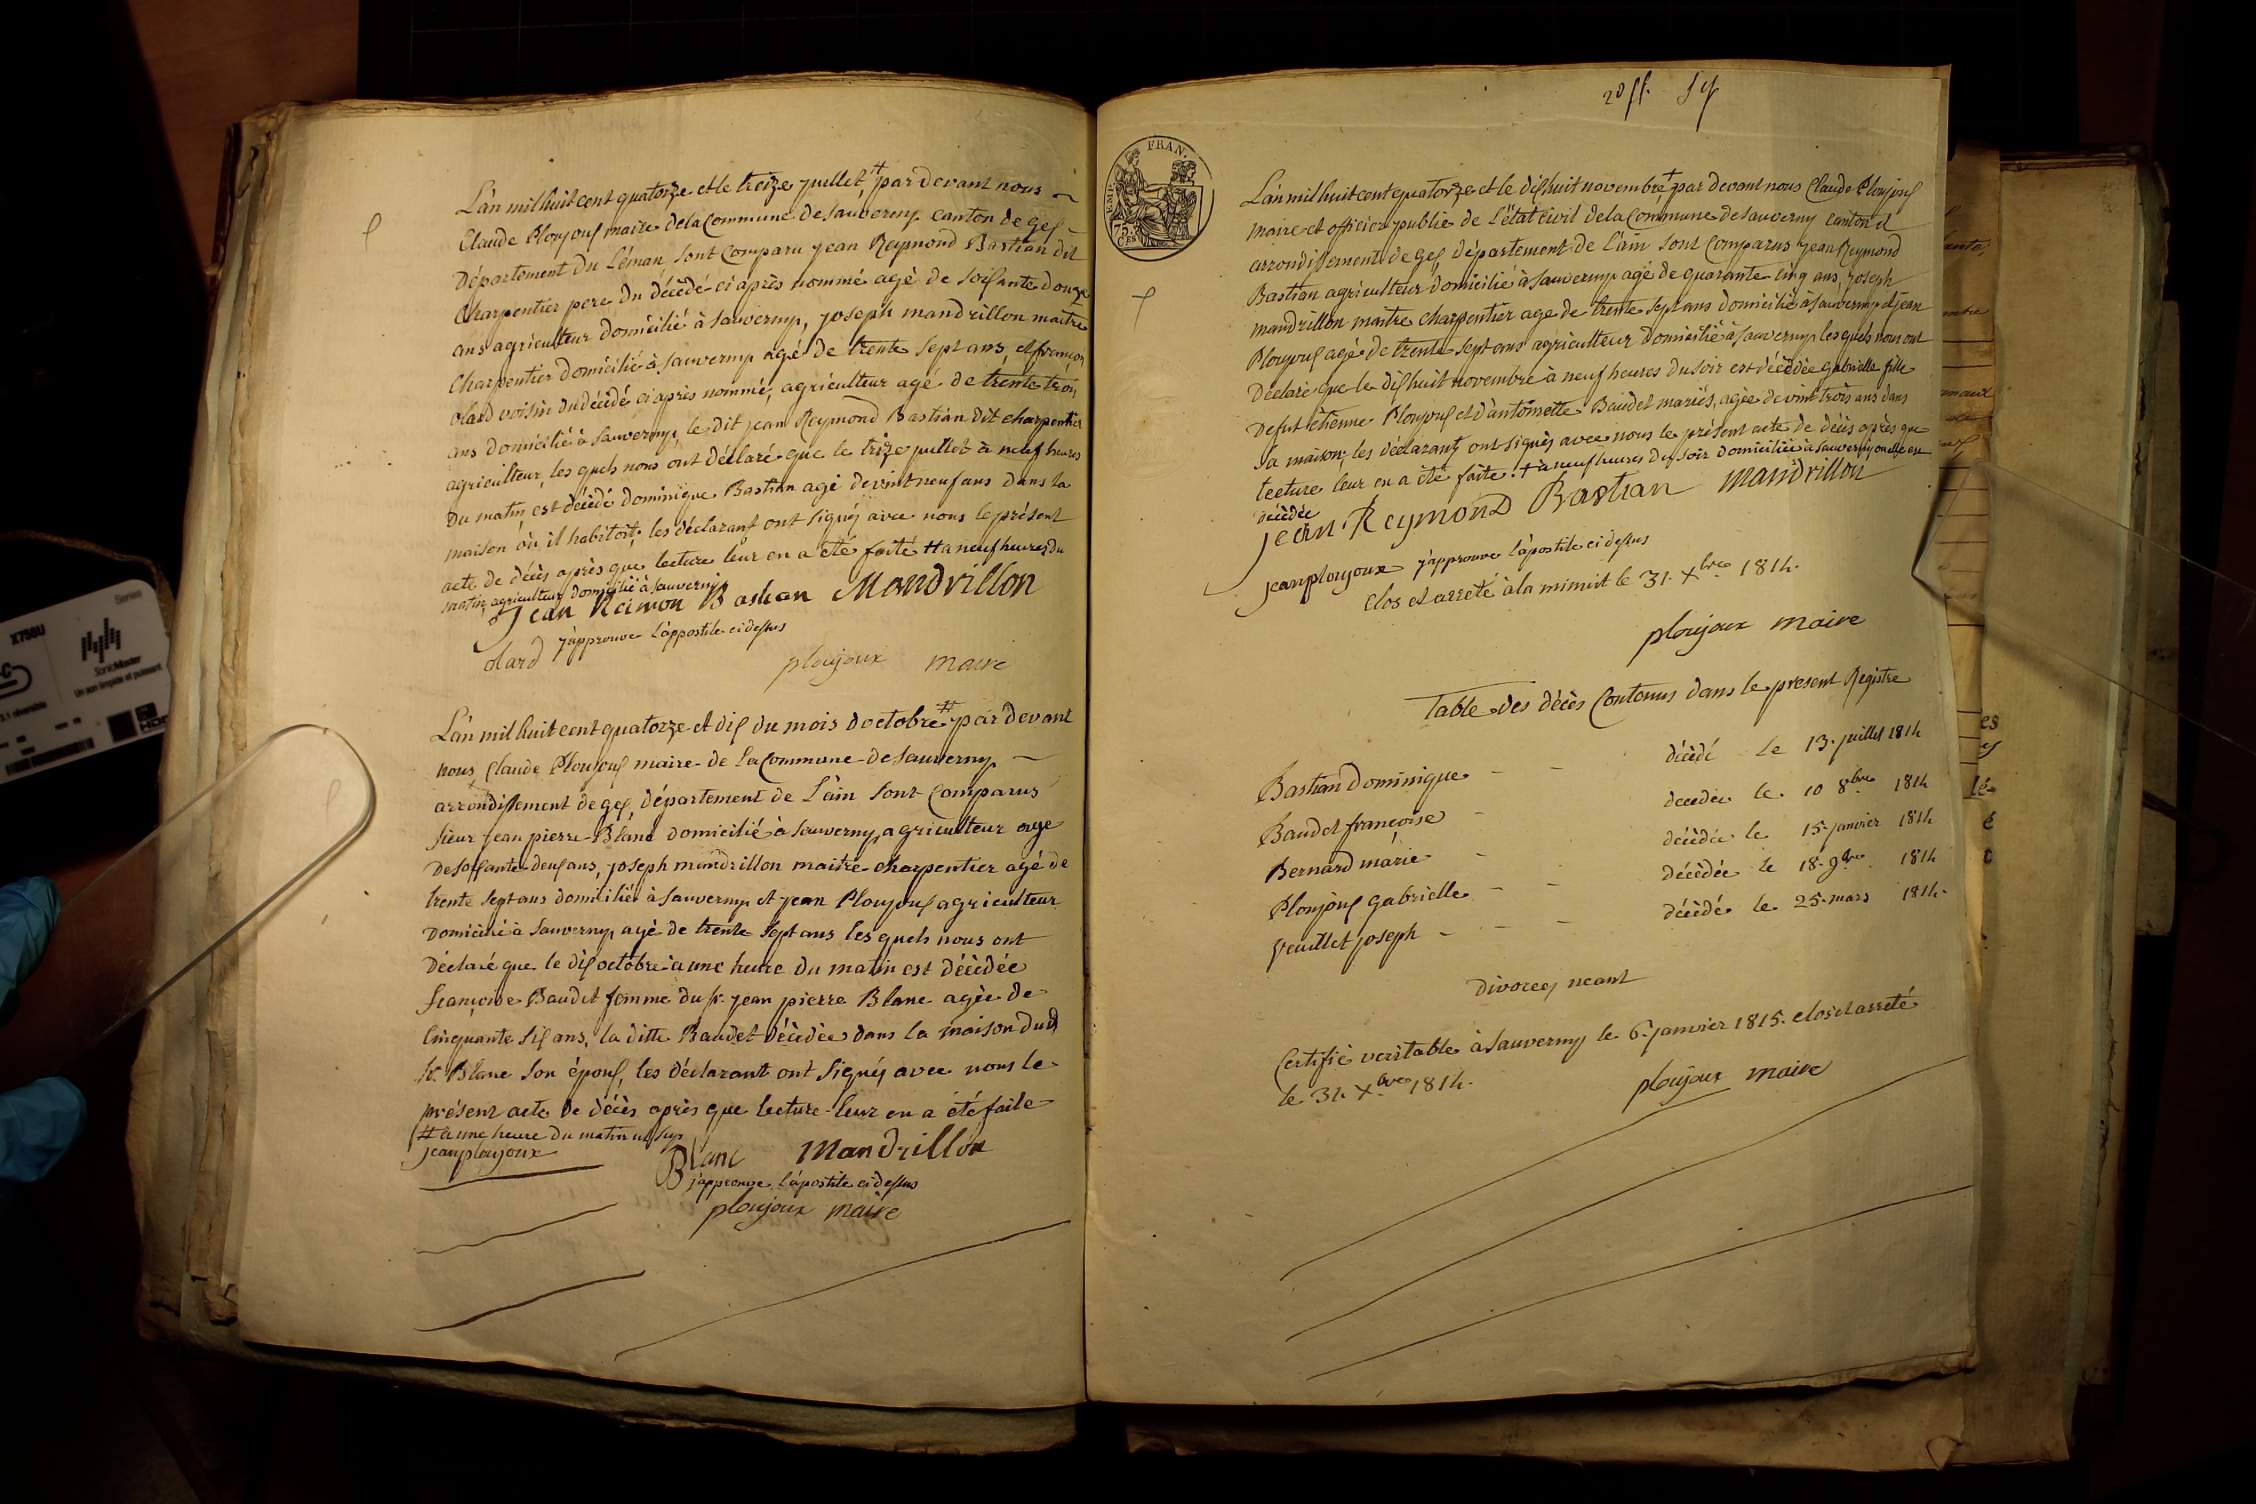 L'an mil huit cent quatorze et le treize juillet, par devant nous
Claude Ploujoux maire de la Commune de Sauverny canton de Gex
Département du Léman sont Comparu jean Reymond Bastian dit
Charpentier pere du décédé ci après nommé agé de soixante douze
ans agriculteur domicilié à Sauverny, joseph mandrillon maitre
Charpentier domicilié à Sauverny agé de trente sept ans, et françois
olard voisin du décédé ci après nommé, agriculteur agé de trente trois
ans domicilié à Sauverny, le dit jean Reymond Bastian dit charpentier
agriculteur, les quels nous ont déclaré que le trize juillet à neuf heures
du matin est décédé dominique Bastian agé de vint neuf ans dans la
maison où il habitoit, les déclarant ont signés avec nous le présent
acte de décès après que lecture leur en a été faite ++ a neuf heures du
matin, agriculteur domicilié à Sauverny
Jean Reimon Bastian Mandrillon
olard j'approuve l'appostile ci dessus
ploujoux maire
L'an mil huit cent quatorze et dix du mois d'octobre # par devant
nous Claude Ploujoux maire de la Commune de Sauverny
arrondissement de gex, département de L'ain sont Comparus
sieur jean pierre Blanc domicilié à Sauverny, agriculteur age
de soissante deux ans, joseph mandrillon maitre charpentier agé de
trente sept ans domicilié à Sauverny et jean Ploujoux agriculteur
domicilié à Sauverny agé de trente sept ans les quels nous ont
déclaré que le dix octobre à une heure du matin est décédée
françoise Baudet femme du sr. jean pierre Blanc agée de
Cinquante six ans, la ditte Baudet décédée dans la maison dud
sr. Blanc son époux, les déclarant ont signés avec nous le
présent acte de décès après que lecture leur en a été faite
# à une heure du matin
jean ploujoux
Blanc Mandrillon
j'approuve l'apostile ci dessus
ploujoux maire
20
FRAN.
EMP.
75.
CES
L'an mil huit cent quatorze et le dix huit novembre + par devant nous Claude Ploujoux
maire et officier public de L'état civil de la Commune de Sauverny canton et
arrondissement de gex département de l'ain sont Comparus jean Reymond
Bastian agriculteur domicilié à Sauverny agé de quarante cinq ans, joseph
mandrillon maitre charpentier age de trente sept ans domicilié à Sauverny et jean
Ploujoux agé de trente sept ans agriculteur domicilié à Sauverny les quels nous ont
Déclaré que le dix huit novembre à neuf heures du soir est décédée gabrielle fille
de fut étienne Ploujoux et d'antoinette Baudet mariés, agée de vint trois ans dans
sa maison, les déclarants ont signés avec nous le présent acte de décès après que
lecture leur en a été faite. + a neuf heures du soir domiciliée à Sauverny ou elle est
décédée
jean Reymond Bastian mandrillon
jean ploujoux j'approuve l'apostile ci dessus
Clos et arrêté à la minuit le 31. Xbre 1814.
ploujoux maire
Table des décès Contenus dans le present Registre
Bastian dominique - - décédé le 13. juillet 1814
Baudet françoise - decedée le 10 8bre 1814
Bernard marie - décédée le 15. janvier 1814
Ploujoux gabrielle - - décédée le 18. 9bre 1814
Veuillet joseph - - - décédé le 25. mars 1814.
divorces neant
Certifié veritable à Sauverny le 6. janvier 1815. clos et arreté
le 31. Xbre 1814.
ploujoux maire
X756U
Series
SonicMaster
Un son limpide et puissant